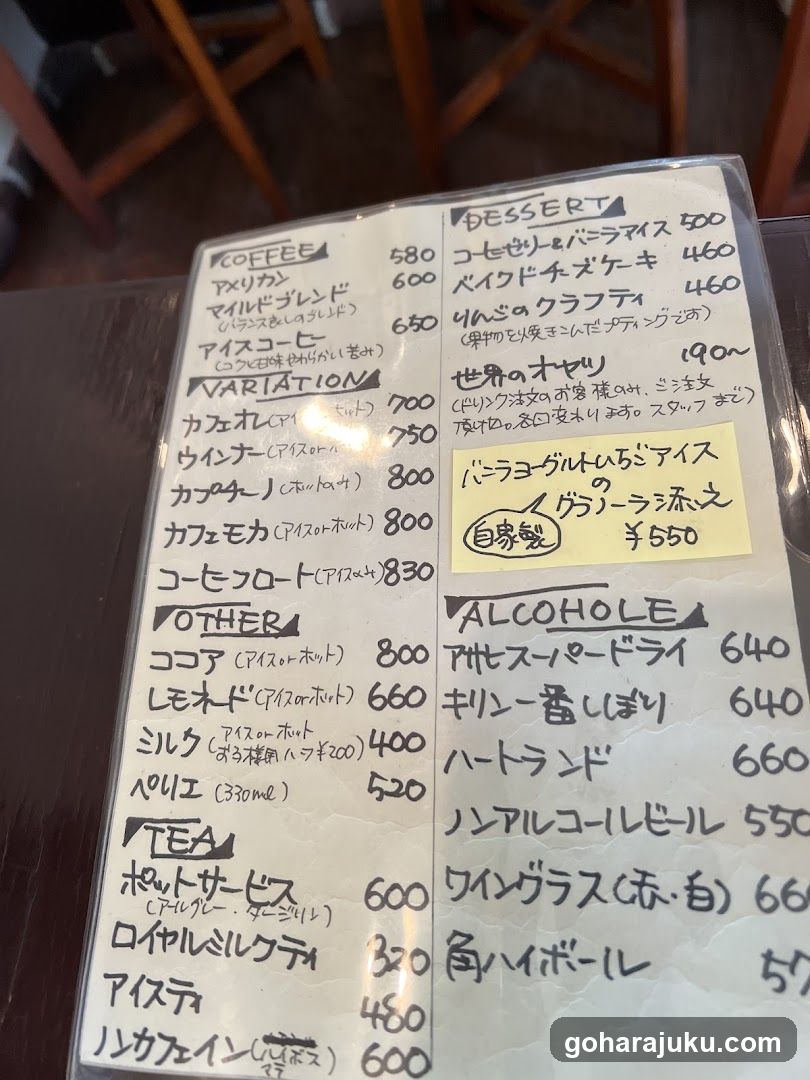 COFFEE
アメリカン 580
マイルドブレンド 600
(バランス良しのブレンド)
アイスコーヒー 650
(コクと甘味やわらかい苦み)
VARIATION
カフェオレ(アイ ホット) 700
ウインナー(アイスor 750
カプチーノ(ホットのみ) 800
カフェモカ(アイスorホット) 800
コーヒーフロート(アイスのみ) 830
OTHER
ココア (アイスorホット) 800
レモネード(アイスorホット) 660
ミルク (アイスorホット 400
お子様用ハーフ¥200)
ペリエ (330ml) 520
TEA
ポットサービス 600
(アールグレー・ダージリン)
ロイヤルミルクティ 320
アイスティ 480
ノンカフェイン( ルイボス 600
マテ
DESSERT
コーヒーゼリー&バニラアイス 500
ベイクドチーズケーキ 460
りんごのクラフティ 460
(果物を焼きこんだプティングです)
世界のオヤツ 190〜
(ドリンク注文のお客様のみ、ご注文
頂け 。各回変わります。スタッフまで)
バニラヨーグルトいちごアイス
の
グラノーラ添え
自家製 ¥550
ALCOHOLE
アサヒスーパードライ 640
キリン一番しぼり 640
ハートランド 660
ノンアルコールビール 550
ワイングラス(赤・白) 66
角ハイボール 57
goharajuku.com